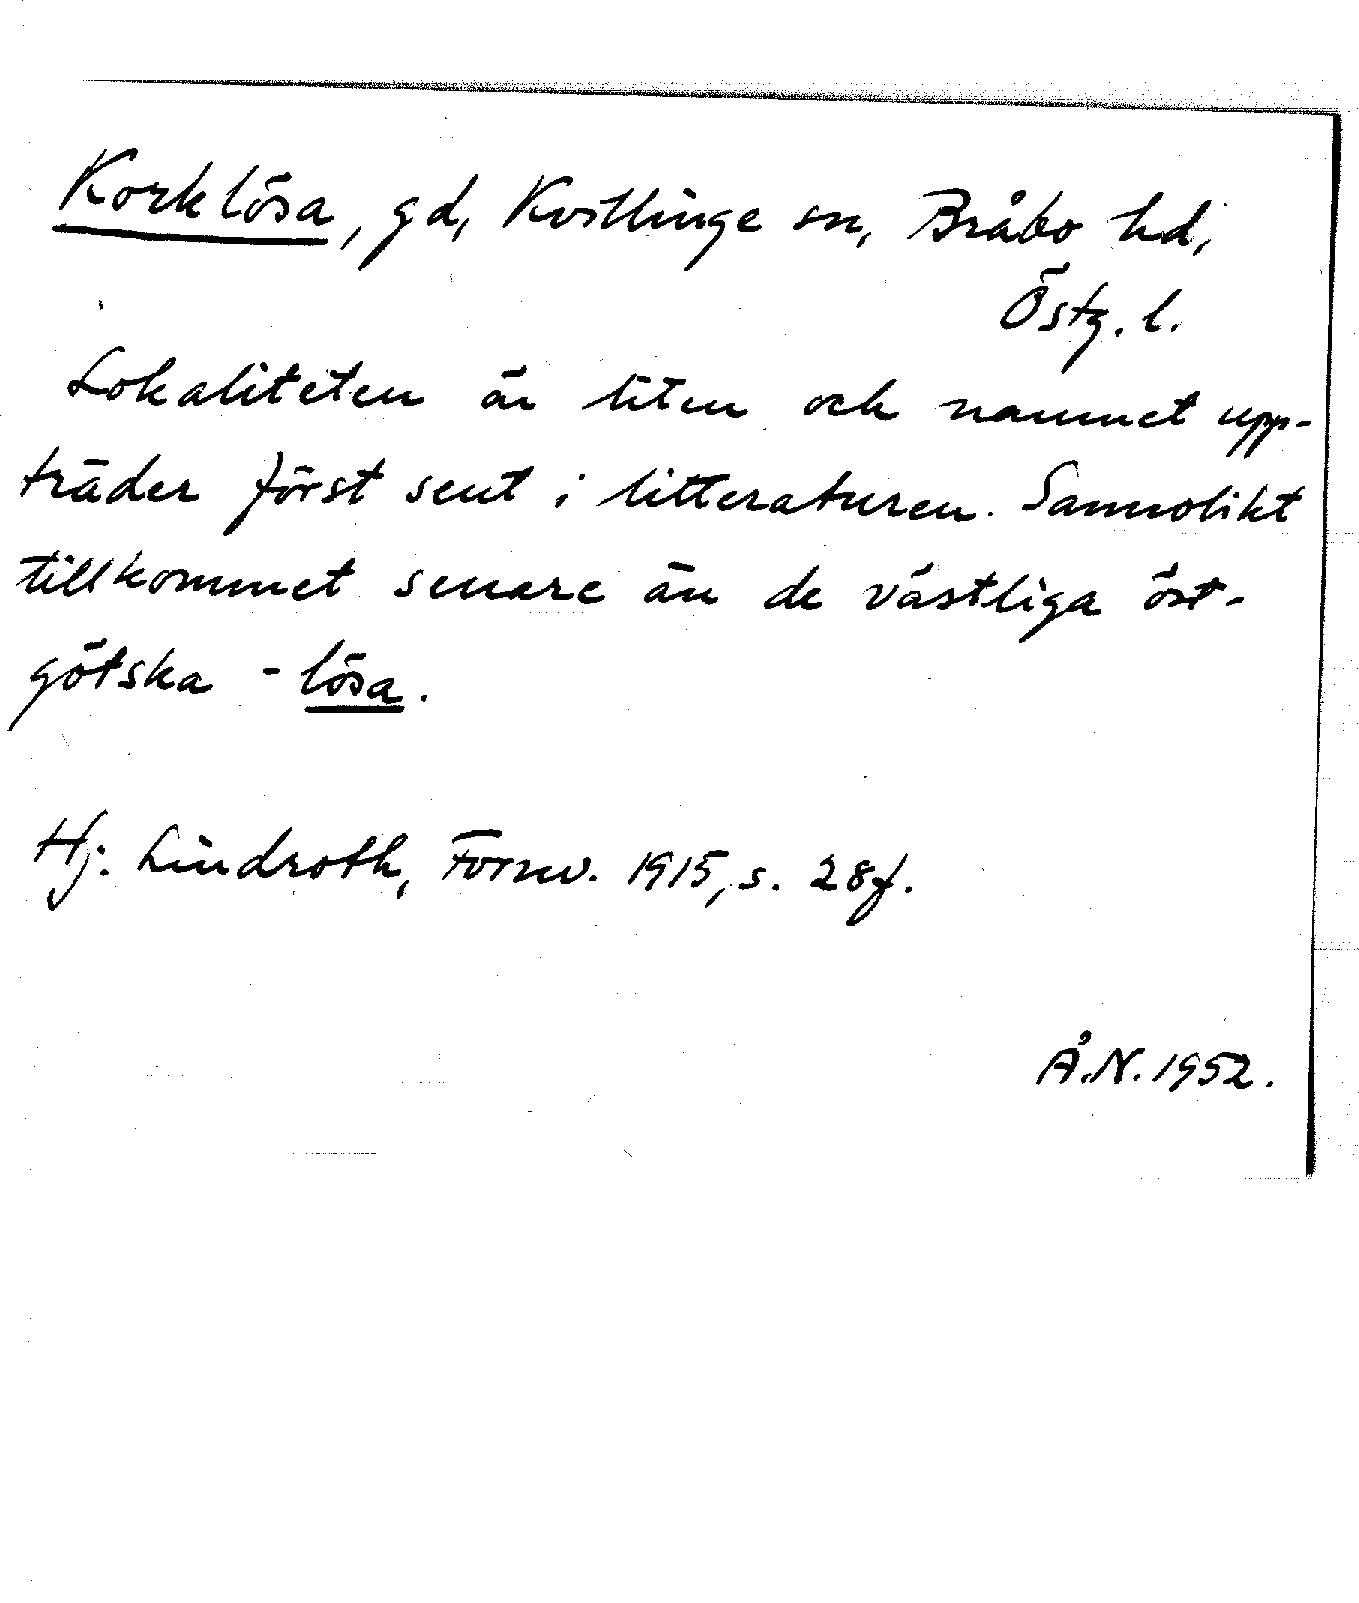 Korklösa, gd, Kvillinge sn, Bråbo hd,
Östg. l.
Lokaliteten är liten och namnet upp-
träder först sent i litteraturen. Sannolikt
tillkommet senare än de västliga öst-
götska -lösa.
Hj. Lindroth, Fornv. 1915, s. 28f.
Å.N. 1952.